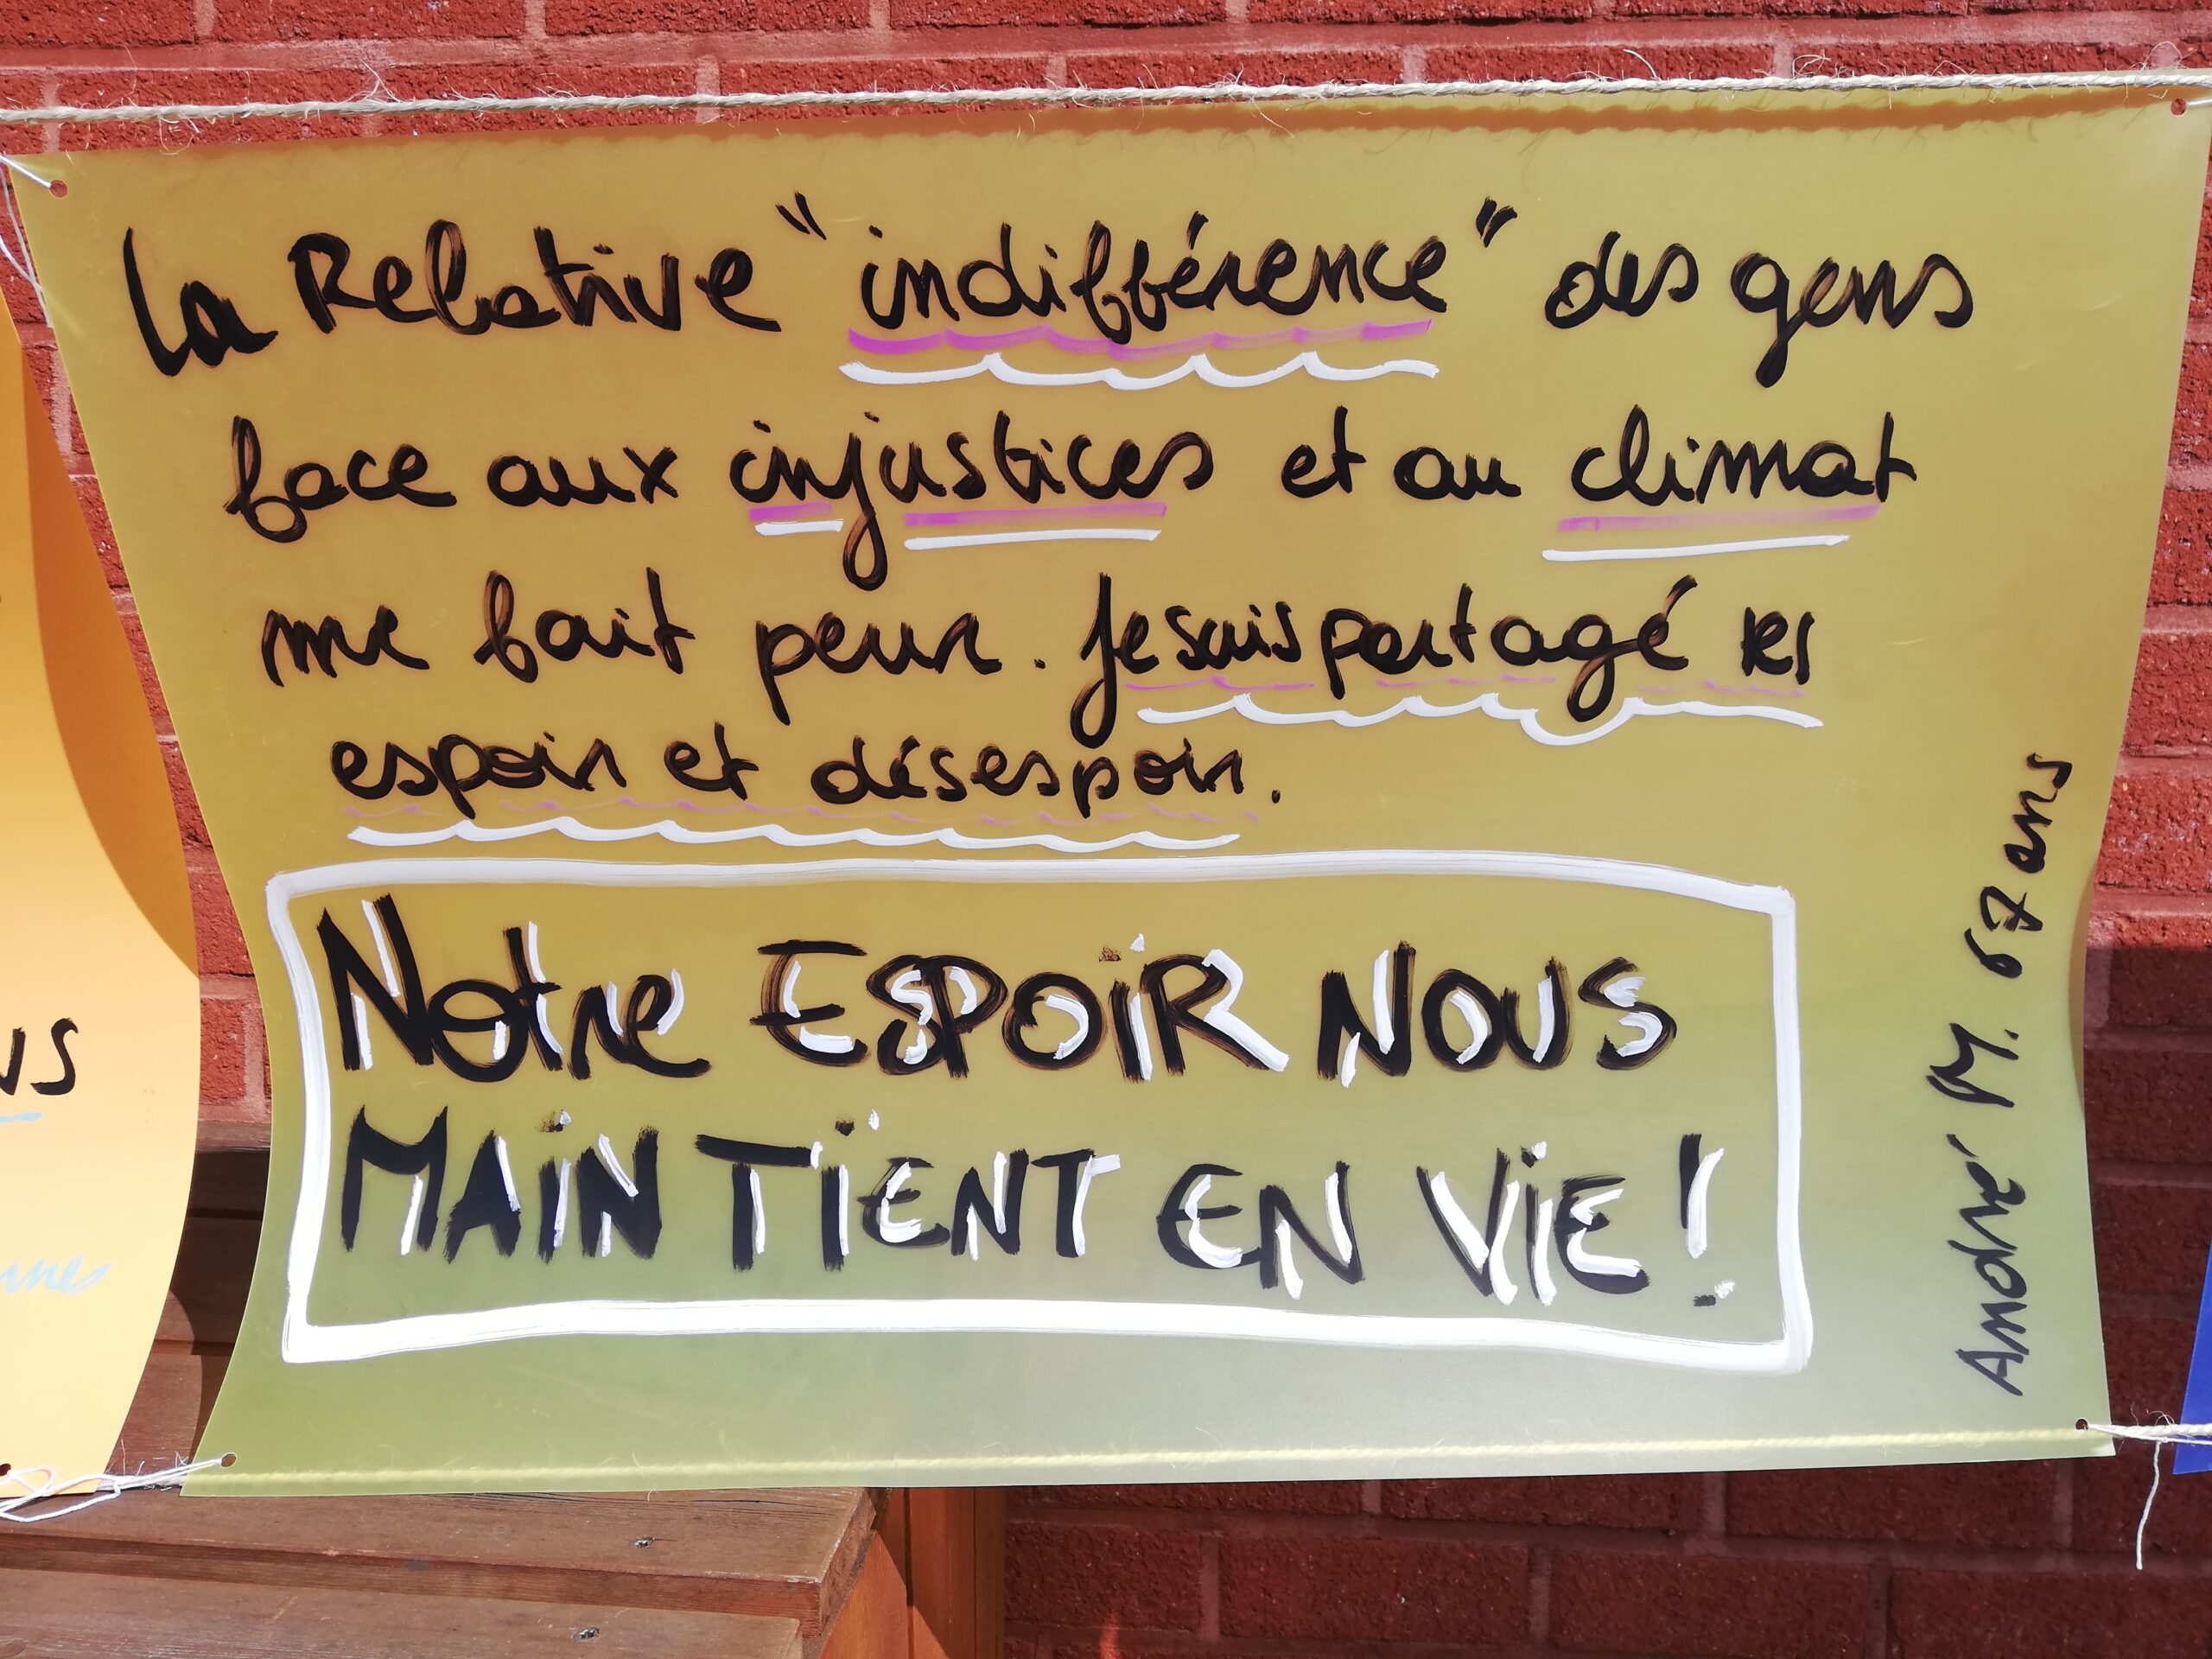 La Relative "indifférence" des gens
face aux injustices et au climat
me fait peur. Je suis partagé
espoir et désespoir.
Notre ESPOIR NOUS
MAINTIENT EN VIE!
André M. 67 ans
NS